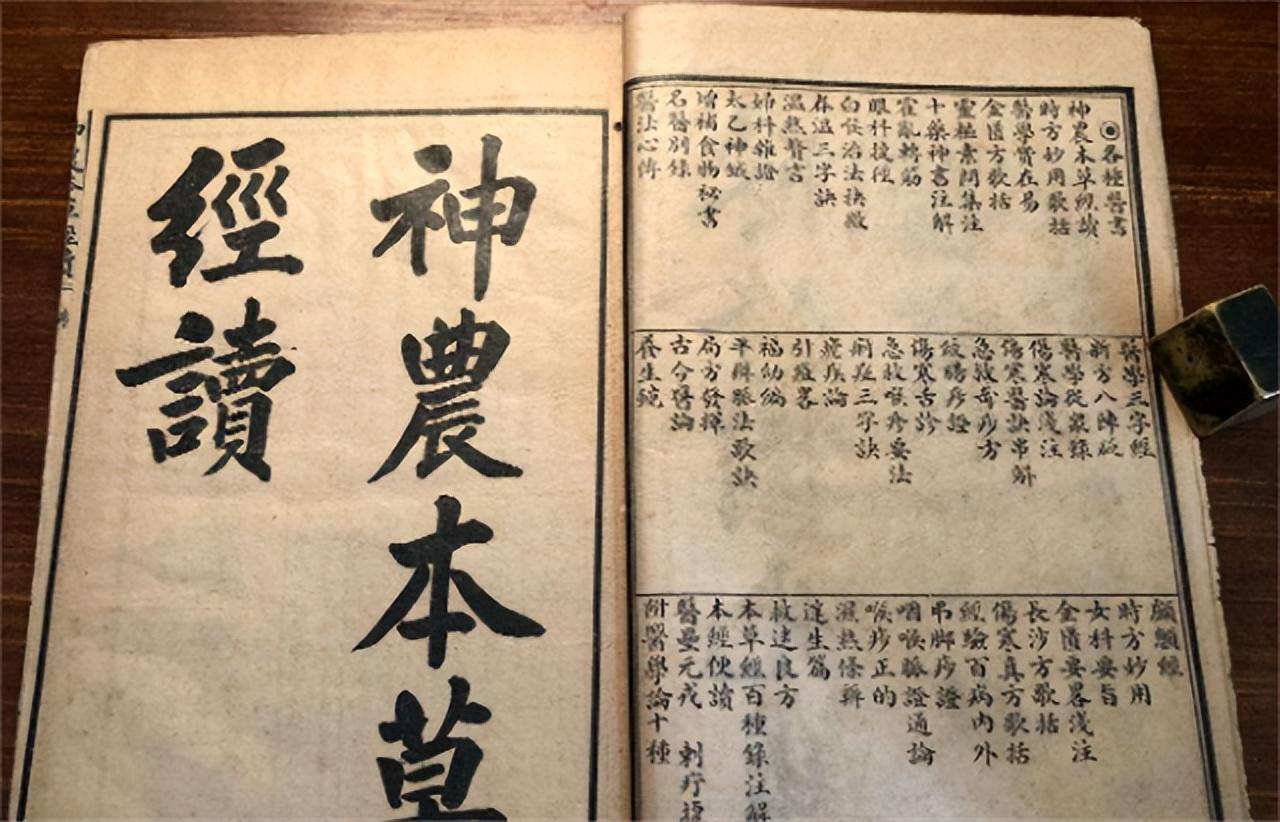 ◉各種醫書
神農本草經讀
時方妙用歌括
醫學實在易
金匱方歌括
靈樞素問集注
十藥神書注解
霍亂轉筋
眼科捷徑
白喉治法抉微
春溫三字訣
溫熱贅言
婦科雜證
太乙神鍼
增補食物秘書
名醫別錄
醫法心傳
醫學三字經
新方八陣砭
醫學從衆錄
傷寒論淺注
傷寒醫訣串解
急救奇痧方
絞腸痧證
傷寒舌診
急救喉痧要法
痢症三字訣
瘧疾論
引痘畧
福幼編
平辨脈法歌訣
局方發揮
古今醫論
養生鏡
顱顖經
時方妙用
女科要旨
金匱要畧淺注
長沙方歌括
傷寒真方歌括
經驗百病內外
弔脚痧證
咽喉脈證通論
喉痧正的
濕熱條辨
達生篇
救迷良方
本草經百種錄注解
本經便讀
醫壘元戎 刺疔捷
附醫學論十種
神農本草
經讀